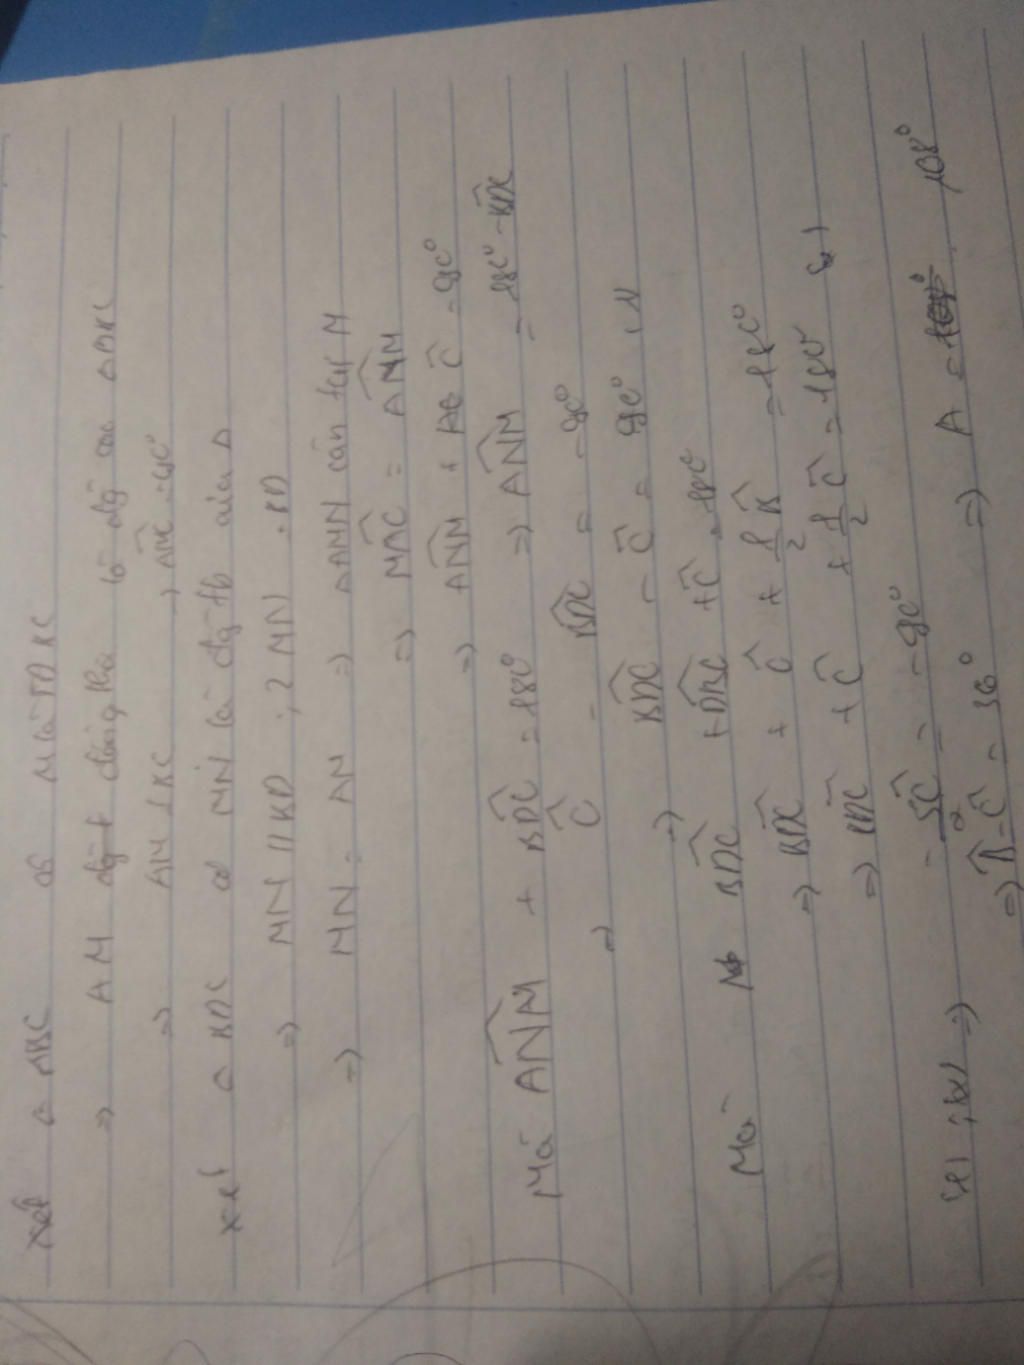 xét △ ABC có M là TĐ BC
=> AM đg t đồng thời là đg cao △ ABC
=> AM ⊥ BC => AMC = 90°
xét △ BDC có MN là đg tb của △
=> MN // BD ; 2 MN = BD
=> MN = AN => △AMN cân tại N
=> MAC = ANM
=> ANM + C = 90°
Mà ANM + BDC = 180° => ANM = 180° - BDC
=> C - BDC = - 90°
=> BDC - C = 90° (1)
Mà BDC + DBC + C = 180°
=> BDC + C + 1/2 B = 180°
=> BDC + C + 1/2 C = 180° (2)
(1) ; (2) => - 5C/2 = - 90°
=> B = C = 36° => A = 108°